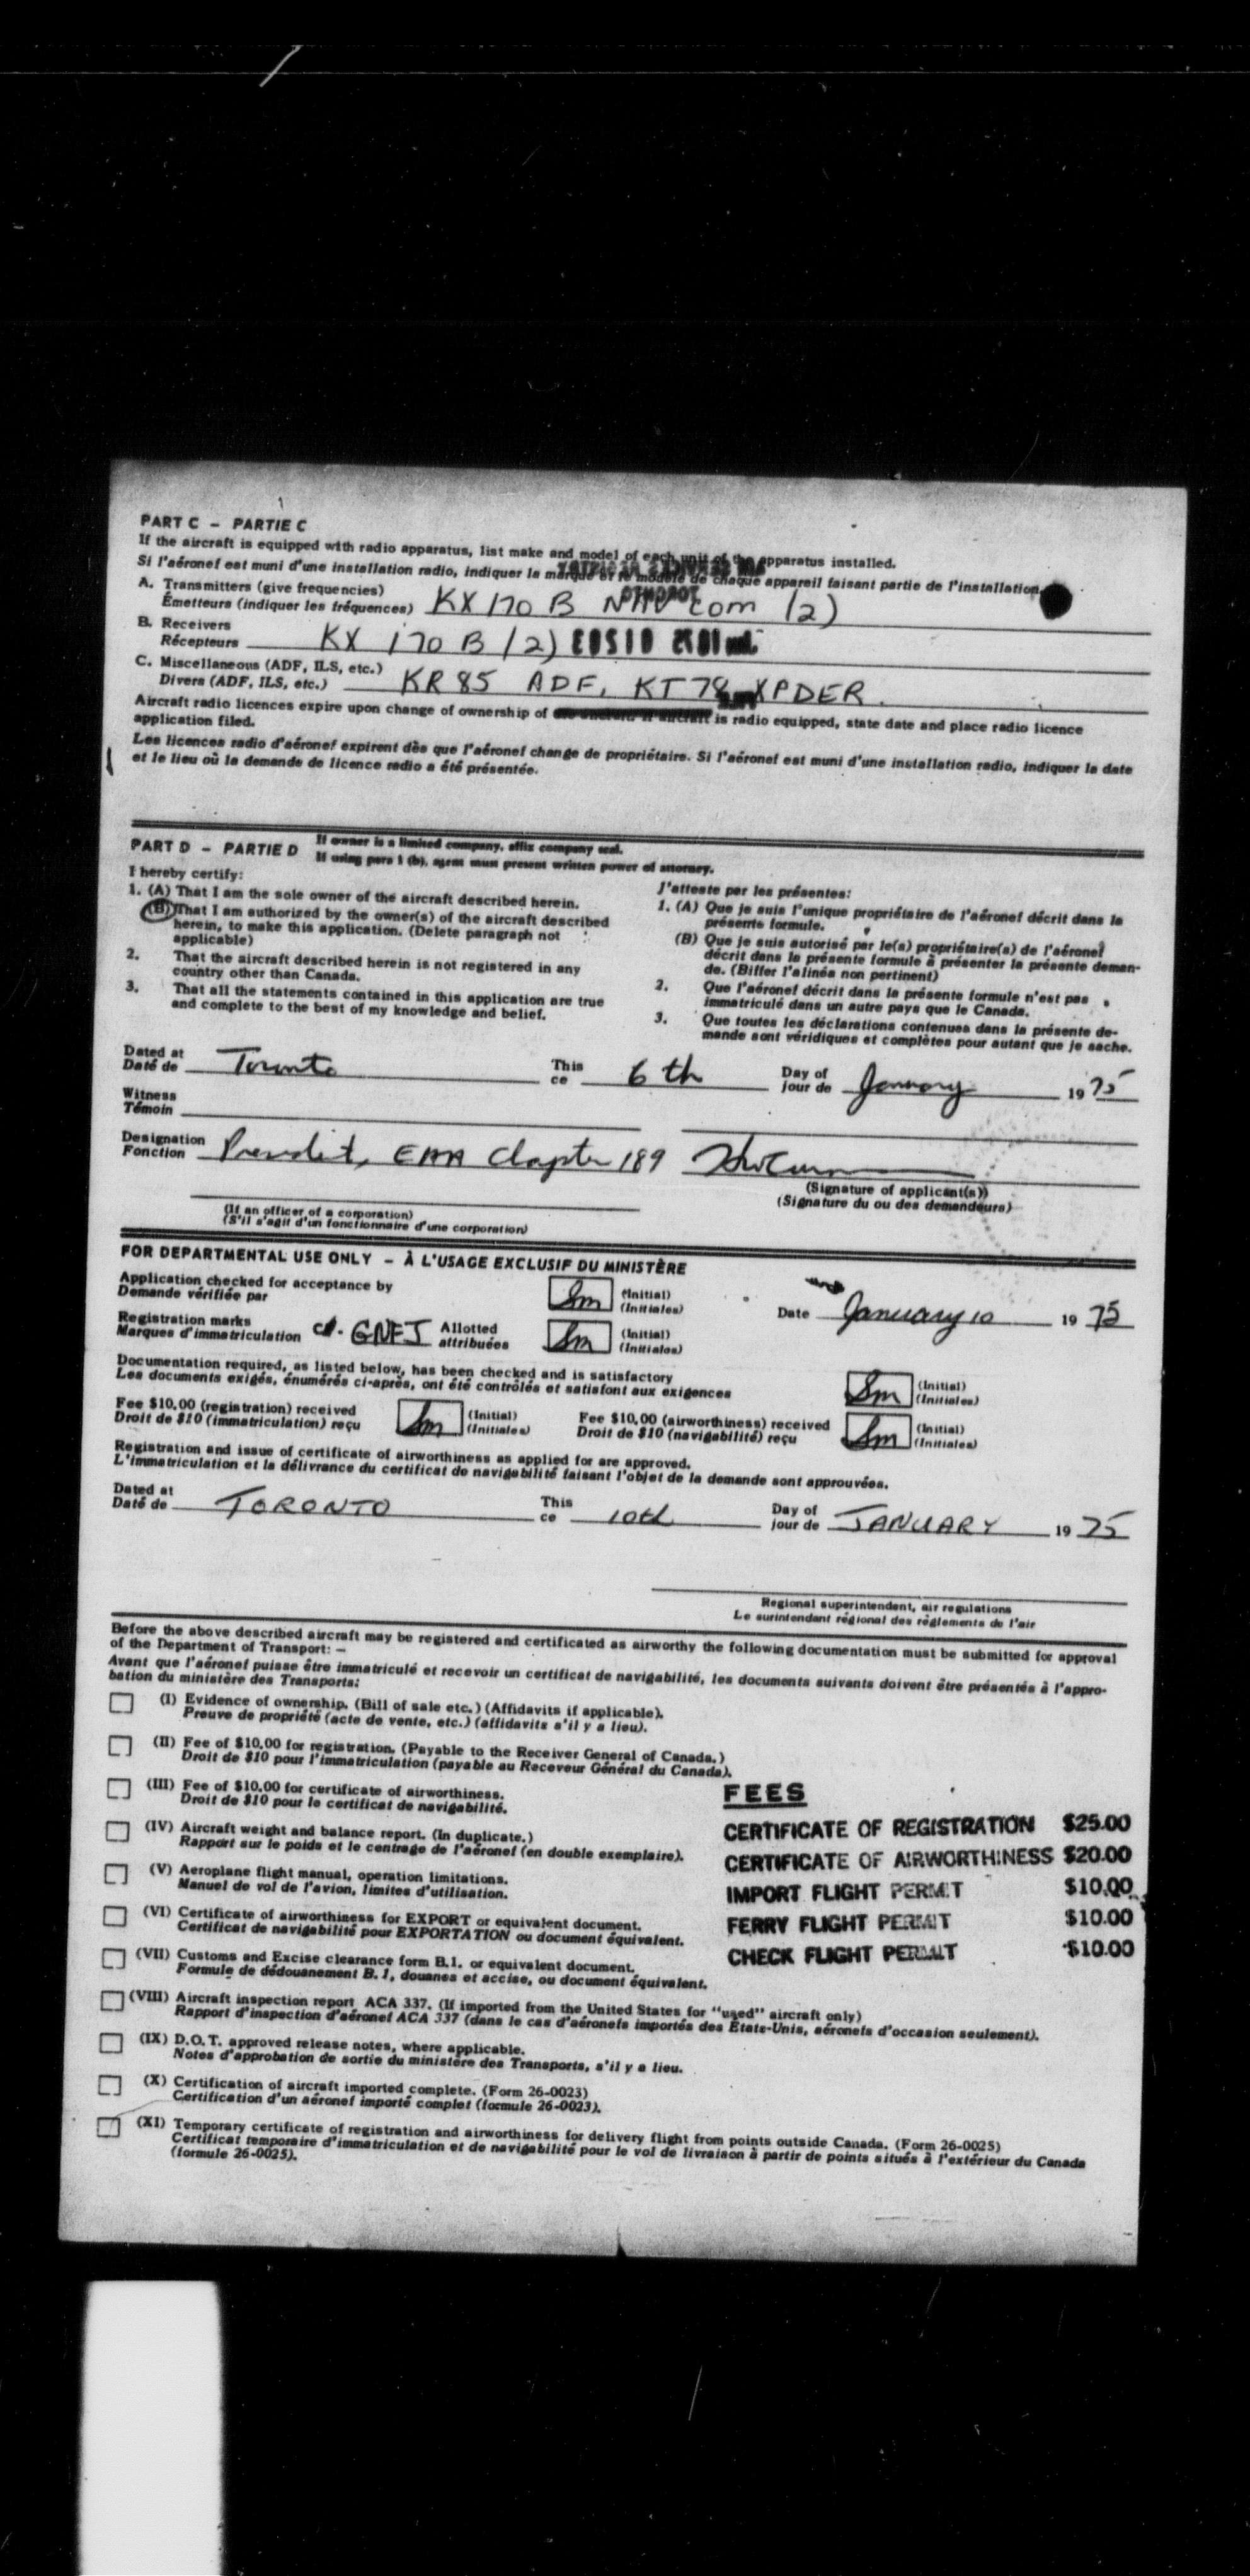 PART C – PARTIE C
If the aircraft is equipped with radio apparatus, list make and model of each unit of the apparatus installed.
Si l'aéronef est muni d'une installation radio, indiquer la marque et le modèle de chaque appareil faisant partie de l'installation.
A. Transmitters (give frequencies)
Émetteurs (indiquer les fréquences) KX 170 B NAV COM (2)
B. Receivers
Récepteurs KX 170 B (2)
C. Miscellaneous (ADF, ILS, etc.)
Divers (ADF, ILS, etc.) KR 85 ADF, KT 78 XPDER.
Aircraft radio licences expire upon change of ownership of is radio equipped, state date and place radio licence
application filed.
Les licences radio d'aéronef expirent dès que l'aéronef change de propriétaire. Si l'aéronef est muni d'une installation radio, indiquer la date
et le lieu où la demande de licence radio a été présentée.
PART D – PARTIE D
If owner is a limited company, affix company seal.
If using para 1 (b), agent must present written power of attorney.
I hereby certify:
1. (A) That I am the sole owner of the aircraft described herein.
(B) That I am authorized by the owner(s) of the aircraft described
herein, to make this application. (Delete paragraph not
applicable)
2. That the aircraft described herein is not registered in any
country other than Canada.
3. That all the statements contained in this application are true
and complete to the best of my knowledge and belief.
J'atteste par les présentes:
1. (A) Que je suis l'unique propriétaire de l'aéronef décrit dans la
présente formule.
(B) Que je suis autorisé par le(s) propriétaire(s) de l'aéronef
décrit dans la présente formule à présenter la présente deman-
de. (Biffer l'alinéa non pertinent)
2. Que l'aéronef décrit dans la présente formule n'est pas
immatriculé dans un autre pays que le Canada.
3. Que toutes les déclarations contenues dans la présente de-
mande sont véridiques et complètes pour autant que je sache.
Dated at This Day of
Daté de Toronto ce 6th jour de January 19 75
Witness
Témoin
Designation
Fonction President, EAA Chapter 189
(Signature of applicant(s))
(Signature du ou des demandeurs)
(If an officer of a corporation)
(S'il s'agit d'un fonctionnaire d'une corporation)
FOR DEPARTMENTAL USE ONLY – À L'USAGE EXCLUSIF DU MINISTÈRE
Application checked for acceptance by Sm (Initial)
Demande vérifiée par (Initiales)
Date January 10 19 75
Registration marks Allotted Sm (Initial)
Marques d'immatriculation CF. GNFJ attribuées (Initiales)
Documentation required, as listed below, has been checked and is satisfactory Sm (Initial)
Les documents exigés, énumérés ci-après, ont été contrôlés et satisfont aux exigences (Initiales)
Fee $10.00 (registration) received Sm (Initial) Fee $10.00 (airworthiness) received Sm (Initial)
Droit de $10 (immatriculation) reçu (Initiales) Droit de $10 (navigabilité) reçu (Initiales)
Registration and issue of certificate of airworthiness as applied for are approved.
L'immatriculation et la délivrance du certificat de navigabilité faisant l'objet de la demande sont approuvées.
Dated at This Day of
Daté de TORONTO ce 10th jour de JANUARY 19 75
Regional superintendent, air regulations
Le surintendant régional des règlements de l'air
Before the above described aircraft may be registered and certificated as airworthy the following documentation must be submitted for approval
of the Department of Transport: –
Avant que l'aéronef puisse être immatriculé et recevoir un certificat de navigabilité, les documents suivants doivent être présentés à l'appro-
bation du ministère des Transports:
(I) Evidence of ownership. (Bill of sale etc.) (Affidavits if applicable).
Preuve de propriété (acte de vente, etc.) (affidavits s'il y a lieu).
(II) Fee of $10.00 for registration. (Payable to the Receiver General of Canada.)
Droit de $10 pour l'immatriculation (payable au Receveur Général du Canada).
(III) Fee of $10.00 for certificate of airworthiness.
Droit de $10 pour le certificat de navigabilité.
(IV) Aircraft weight and balance report. (In duplicate.)
Rapport sur le poids et le centrage de l'aéronef (en double exemplaire).
(V) Aeroplane flight manual, operation limitations.
Manuel de vol de l'avion, limites d'utilisation.
(VI) Certificate of airworthiness for EXPORT or equivalent document.
Certificat de navigabilité pour EXPORTATION ou document équivalent.
(VII) Customs and Excise clearance form B.1. or equivalent document.
Formule de dédouanement B.1, douanes et accise, ou document équivalent.
FEES
CERTIFICATE OF REGISTRATION $25.00
CERTIFICATE OF AIRWORTHINESS $20.00
IMPORT FLIGHT PERMIT $10.00
FERRY FLIGHT PERMIT $10.00
CHECK FLIGHT PERMIT $10.00
(VIII) Aircraft inspection report ACA 337. (If imported from the United States for "used" aircraft only)
Rapport d'inspection d'aéronef ACA 337 (dans le cas d'aéronefs importés des États-Unis, aéronefs d'occasion seulement).
(IX) D.O.T. approved release notes, where applicable.
Notes d'approbation de sortie du ministère des Transports, s'il y a lieu.
(X) Certification of aircraft imported complete. (Form 26-0023)
Certification d'un aéronef importé complet (formule 26-0023).
(XI) Temporary certificate of registration and airworthiness for delivery flight from points outside Canada. (Form 26-0025)
Certificat temporaire d'immatriculation et de navigabilité pour le vol de livraison à partir de points situés à l'extérieur du Canada
(formule 26-0025).